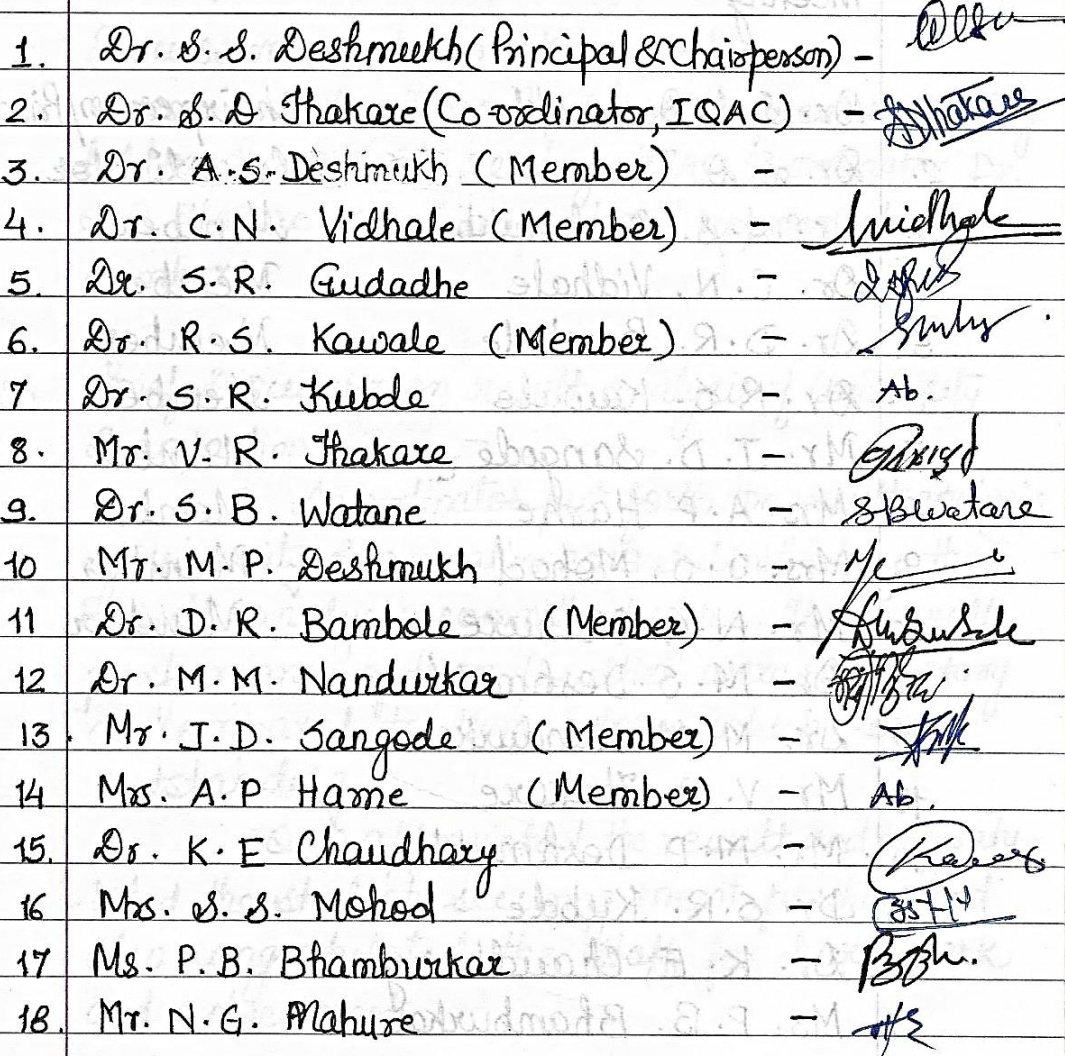 1. Dr. S. S. Deshmukh (Principal & Chairperson) -
2. Dr. S. D Thakare (Co-ordinator, IQAC) - SDThakare
3. Dr. A.S. Deshmukh (Member) -
4. Dr. C.N. Vidhale (Member) - Vidhale
5. Dr. S.R. Gudadhe -
6. Dr. R.S. Kawale (Member) -
7 Dr. S.R. Kubde - Ab.
8. Mr. V. R. Thakare -
9. Dr. S.B. Watane - SBWatane
10 Mr. M.P. Deshmukh -
11 Dr. D.R. Bambole (Member) -
12 Dr. M.M. Nandurkar -
13. Mr. J.D. Sangode (Member) -
14 Mrs. A.P Harne (Member) - Ab.
15. Dr. K.E Chaudhary -
16 Mrs. S.S. Mohod -
17 Ms. P.B. Bhamburkar -
18. Mr. N.G. Mahure -